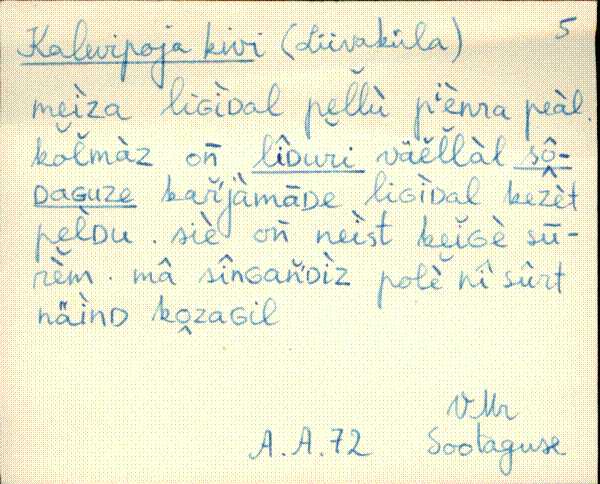 5
Kalevipoja kivi (Liivaküla)
meìza liGìDal pĕl̆lù pìènra peàl.
kŏl̆màz on̄ lîDuri väĕl̆làl sô-
DaGuze kar̆jàmāDe liGìDal kezèt
pelDu. siè on̄ neìst keĭGè sū-
rĕm. mâ sînGan̆Dìz polĕ nî sûrt
näìnD ko̭zaGil
VMr
A.A.72 Sootaguse